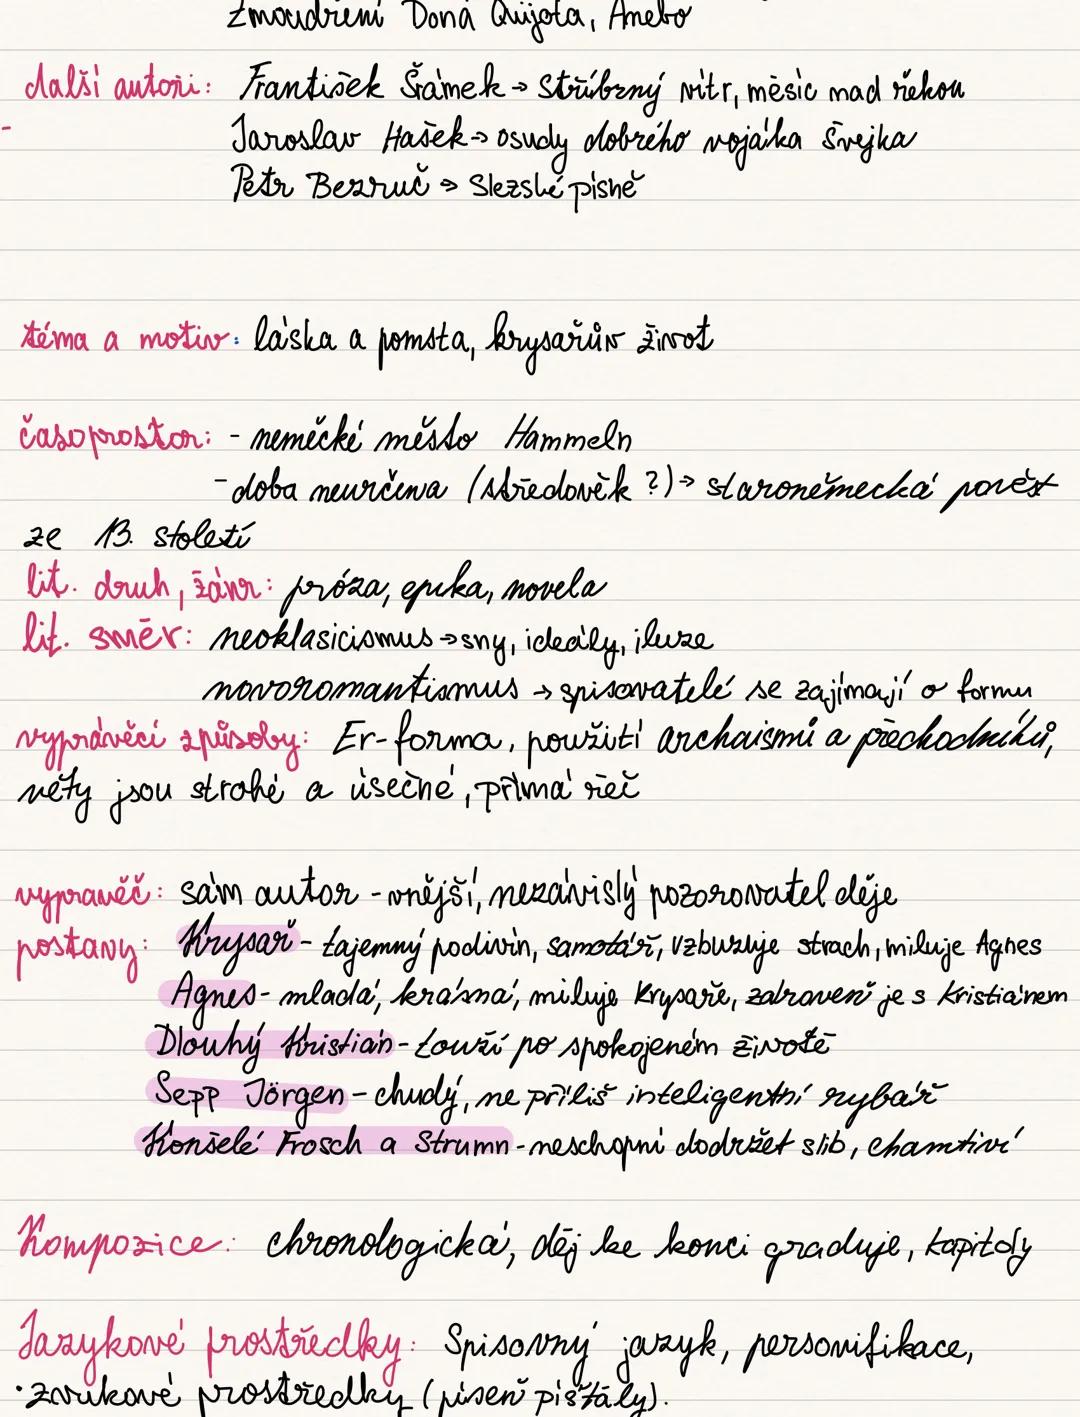 Zmoudření Dona Quijota, Anebo
další autoři: František Šrámek → Stříbrný vítr, měsíc nad řekou
Jaroslav Hašek → osudy dobrého vojáka švejka
Petr Bezruč → Slezské písně
téma a motiv: láska a pomsta, krysařův život
časoprostor: - německé město Hammeln
- doba neurčena (středověk ?) → staroněmecká pověst
ze 13. století
lit. druh, žánr: próza, epika, novela
lit. směr: neoklasicismus → sny, ideály, iluze
novoromantismus → spisovatelé se zajímají o formu
vyprávěcí způsoby: Er-forma, použití archaismů a přechodníků,
věty jsou strohé a úsečné, přímá řeč
vypravěč: sám autor - vnější, nezávislý pozorovatel děje
postavy: Krysař - tajemný podivín, samotář, vzbuzuje strach, miluje Agnes
Agnes - mladá, krásná, miluje Krysaře, zároveň je s Kristiánem
Dlouhý Kristián - touží po spokojeném životě
Sepp Jörgen - chudý, ne příliš inteligentní rybář
Konšelé Frosch a Strumn - neschopni dodržet slib, chamtiví
Kompozice: chronologická, děj ke konci graduje, kapitoly
Jazykové prostředky: Spisovný jazyk, personifikace,
• zvukové prostředky (píseň píšťaly).